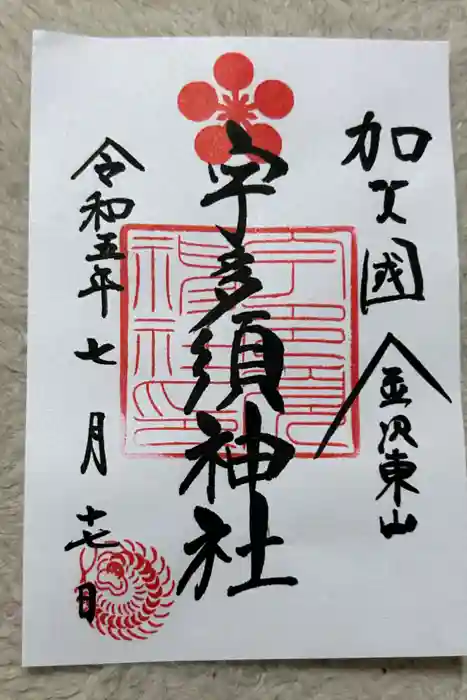 加賀國
金沢東山
宇多須神社
令和五年
七月
十七日